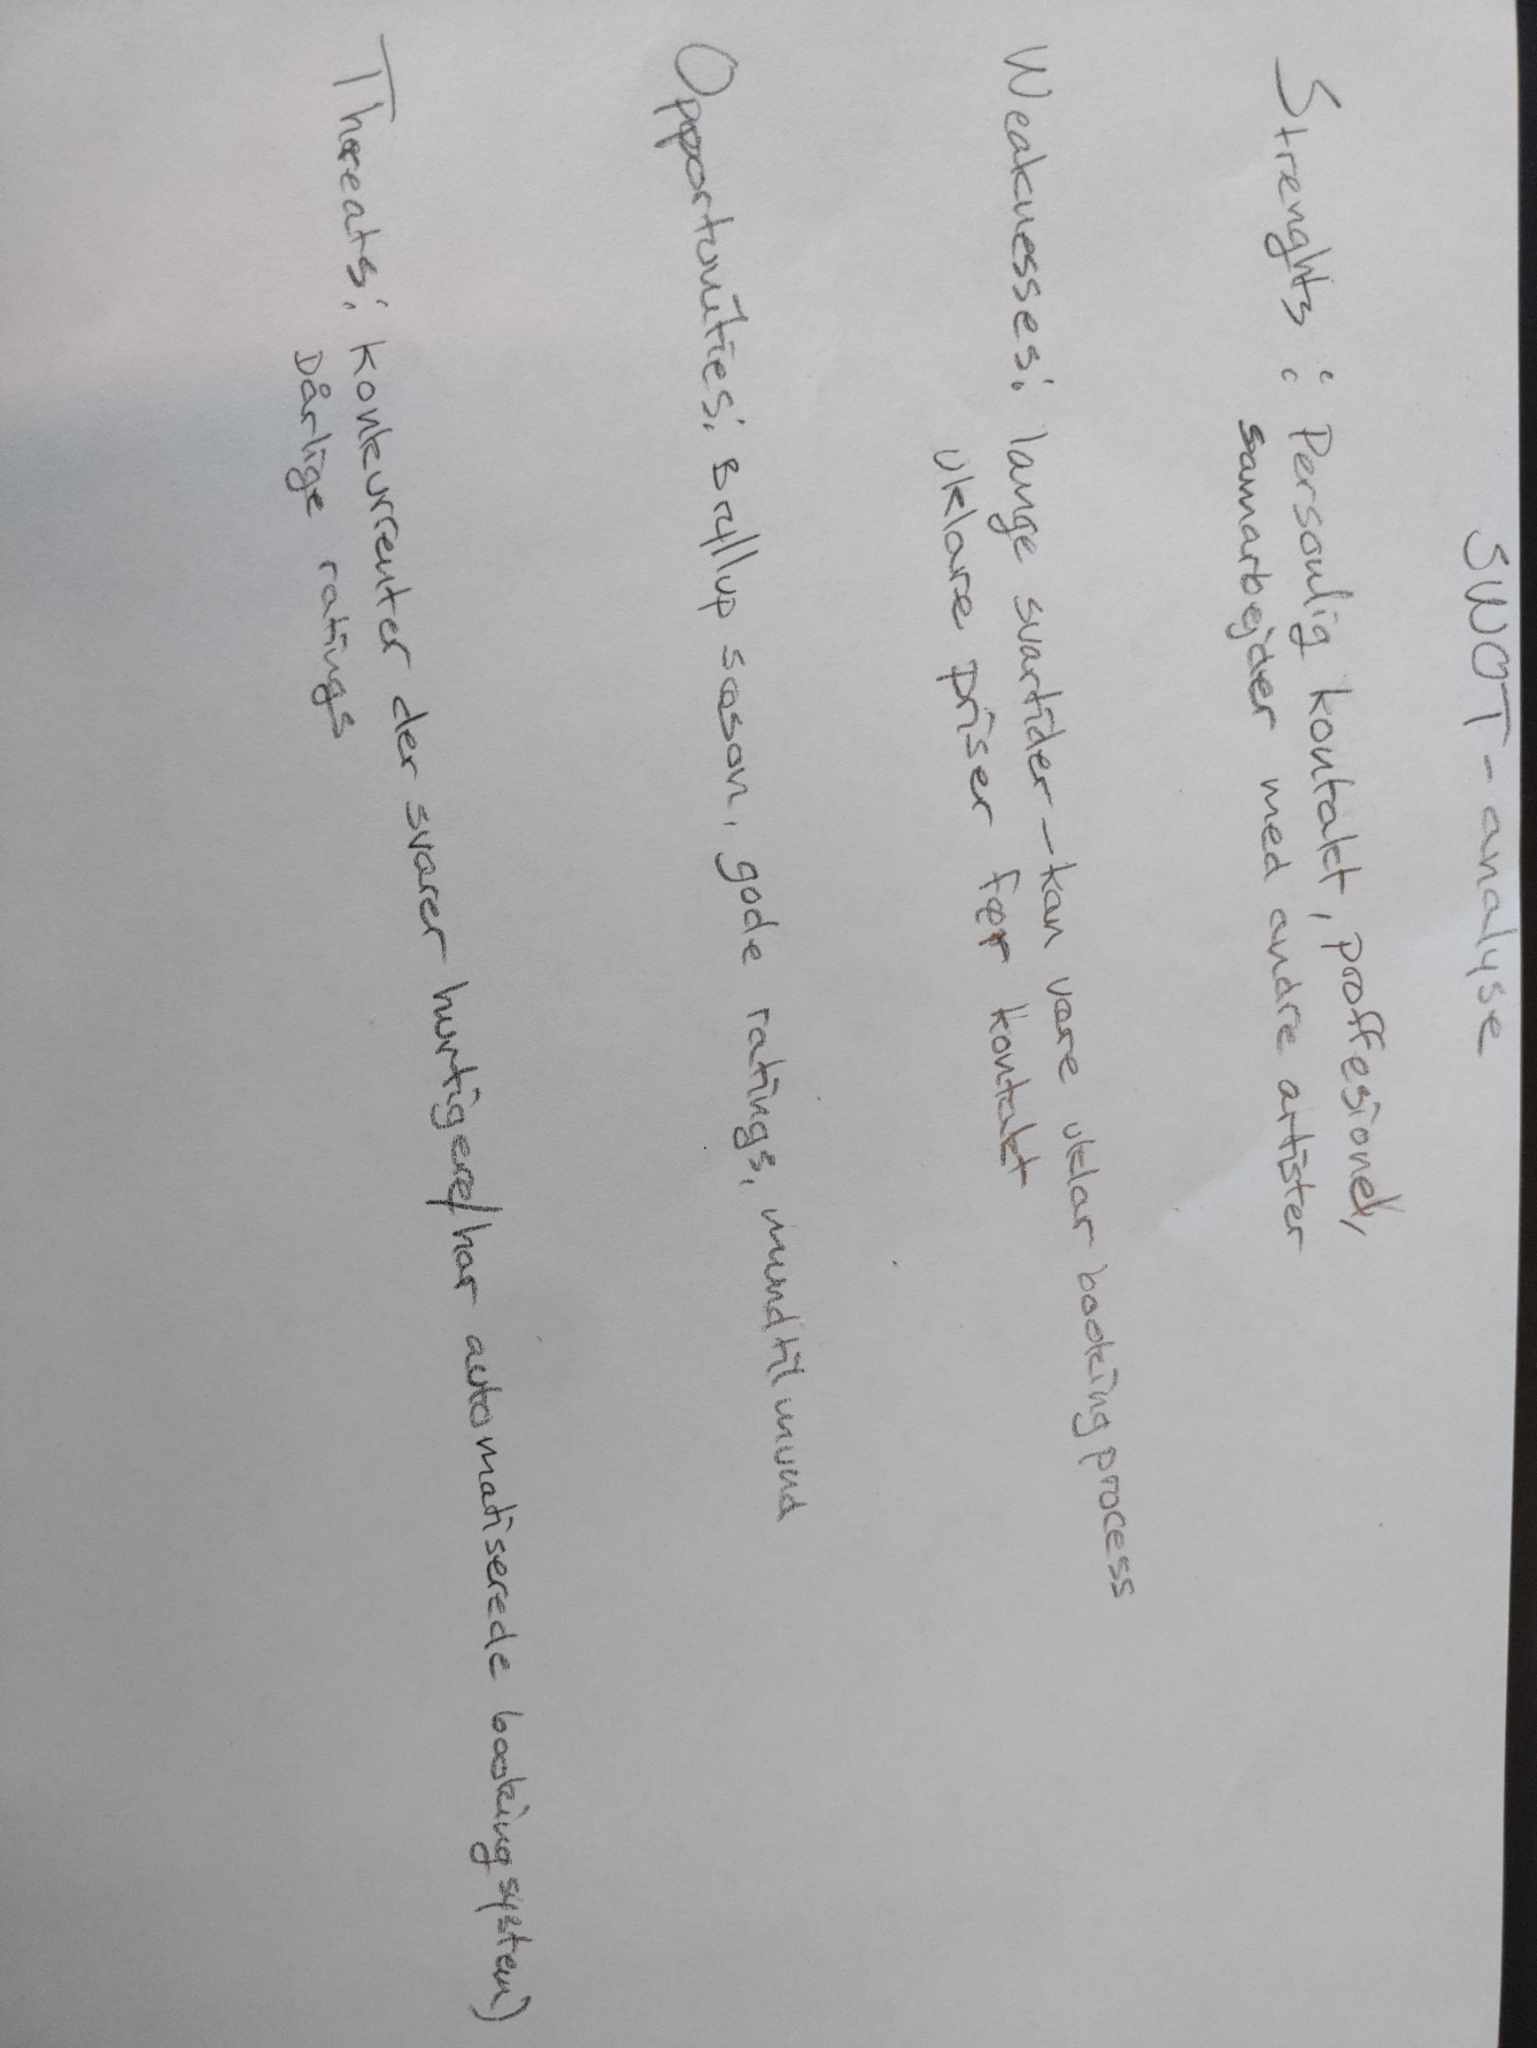 SWOT-analyse
Strenghts: Personlig kontakt, proffesionel,
samarbejder med andre artister
Weaknesses: lange svartider - kan være uklar booking process
uklare priser før kontakt
Opportunities: Bryllup sæson, gode ratings, mund til mund
Thereats: konkurrenter der svarer hurtigere/har automatiserede booking system)
Dårlige ratings